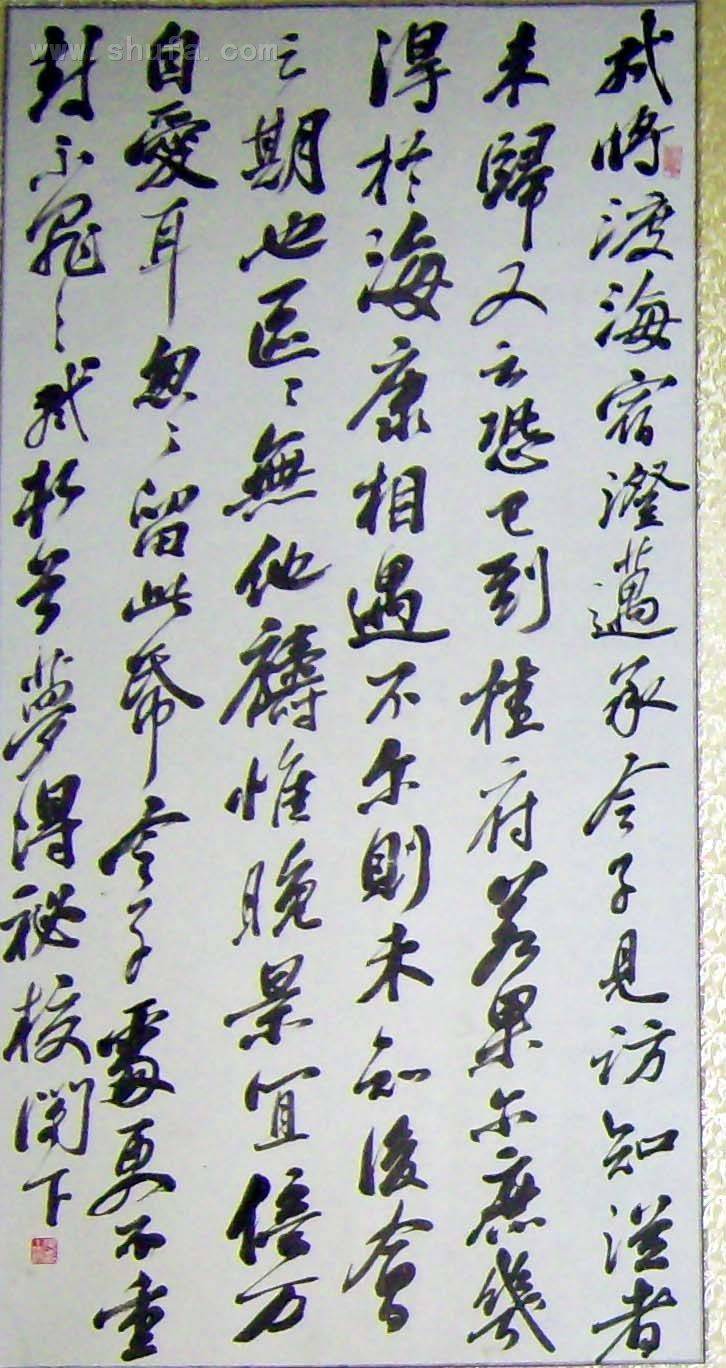 www.shufa.com
軾將渡海宿澄邁承令子見訪知從者
未歸又云恐已到桂府若果尔庶幾
得於海康相遇不尔則未知後會
之期也區〻無他禱惟晚景宜倍万
自愛耳忽〻留此帋令子處更不重
封不罪〻軾頓首夢得祕校閤下